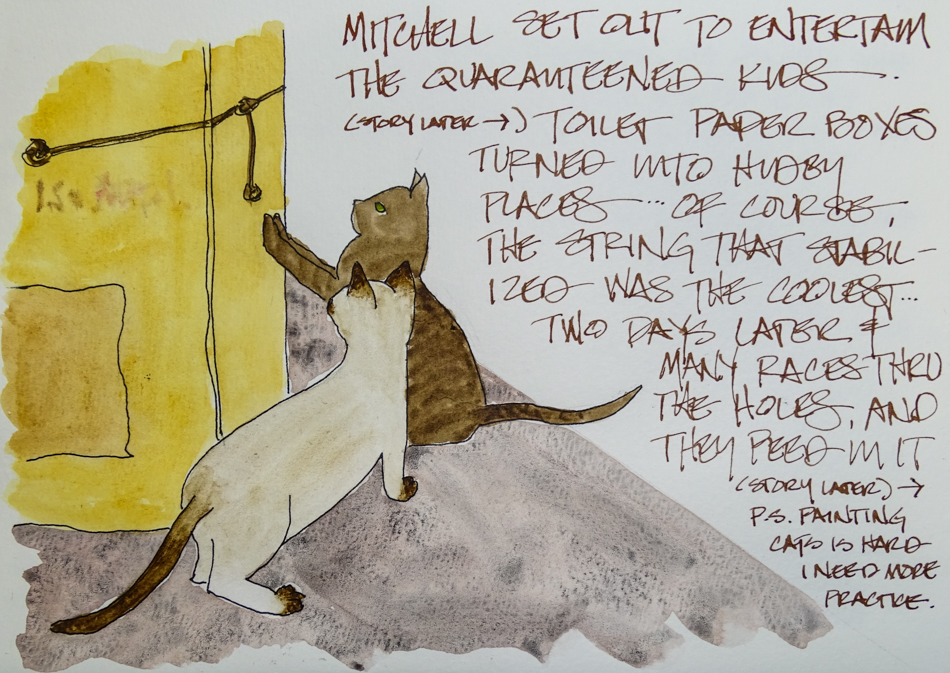 MITCHELL SET OUT TO ENTERTAIN
THE QUARANTEENED KIDS.
(STORY LATER →) TOILET PAPER BOXES
TURNED INTO HIDEY
PLACES ... OF COURSE,
THE STRING THAT STABIL-
IZED WAS THE COOLEST...
TWO DAYS LATER &
MANY RACES THRU
THE HOLES, AND
THEY PEED IN IT
(STORY LATER) →
P.S. PAINTING
CATS IS HARD
I NEED MORE
PRACTICE.